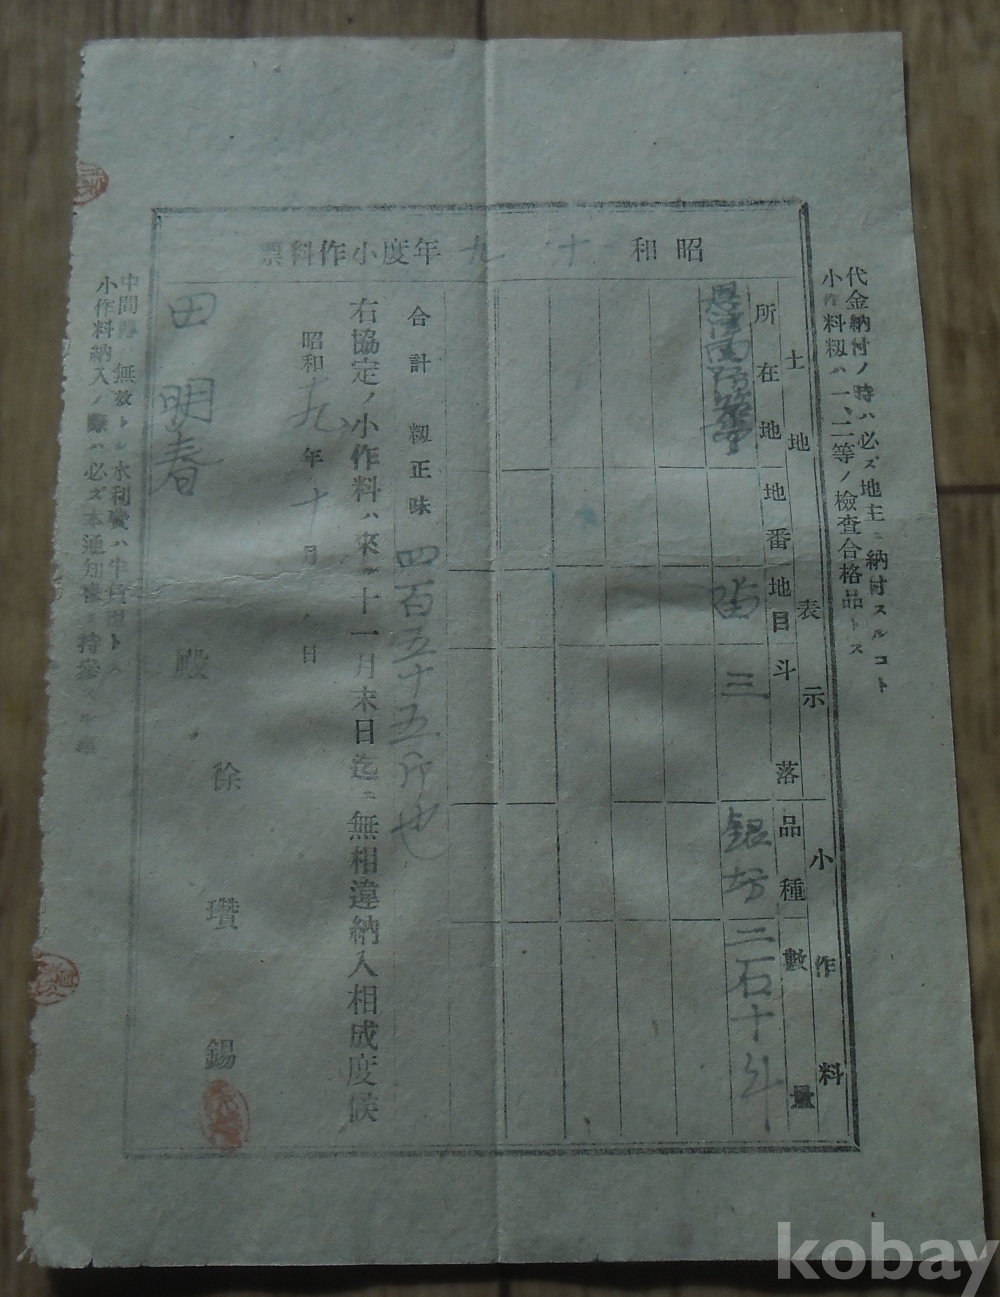 代金納付ノ時ハ必ズ地主ニ納付スルコト
小作料籾ハ一、二等ノ檢査合格品トス
昭和十九年度小作料票
土地表示
小作料
所在地
地番
地目
斗落
品種
數量
畓
三
銀坊
二石十斗
合計 籾正味 四百五十五斤也
右協定ノ小作料ハ來ル十一月末日迄ニ無相違納入相成度候
昭和十九年十月 日
徐瓚錫
田明春 殿
中間 無效トシ水利費ハ
小作料納入ノ際ハ必ズ本通知書持參
kobay